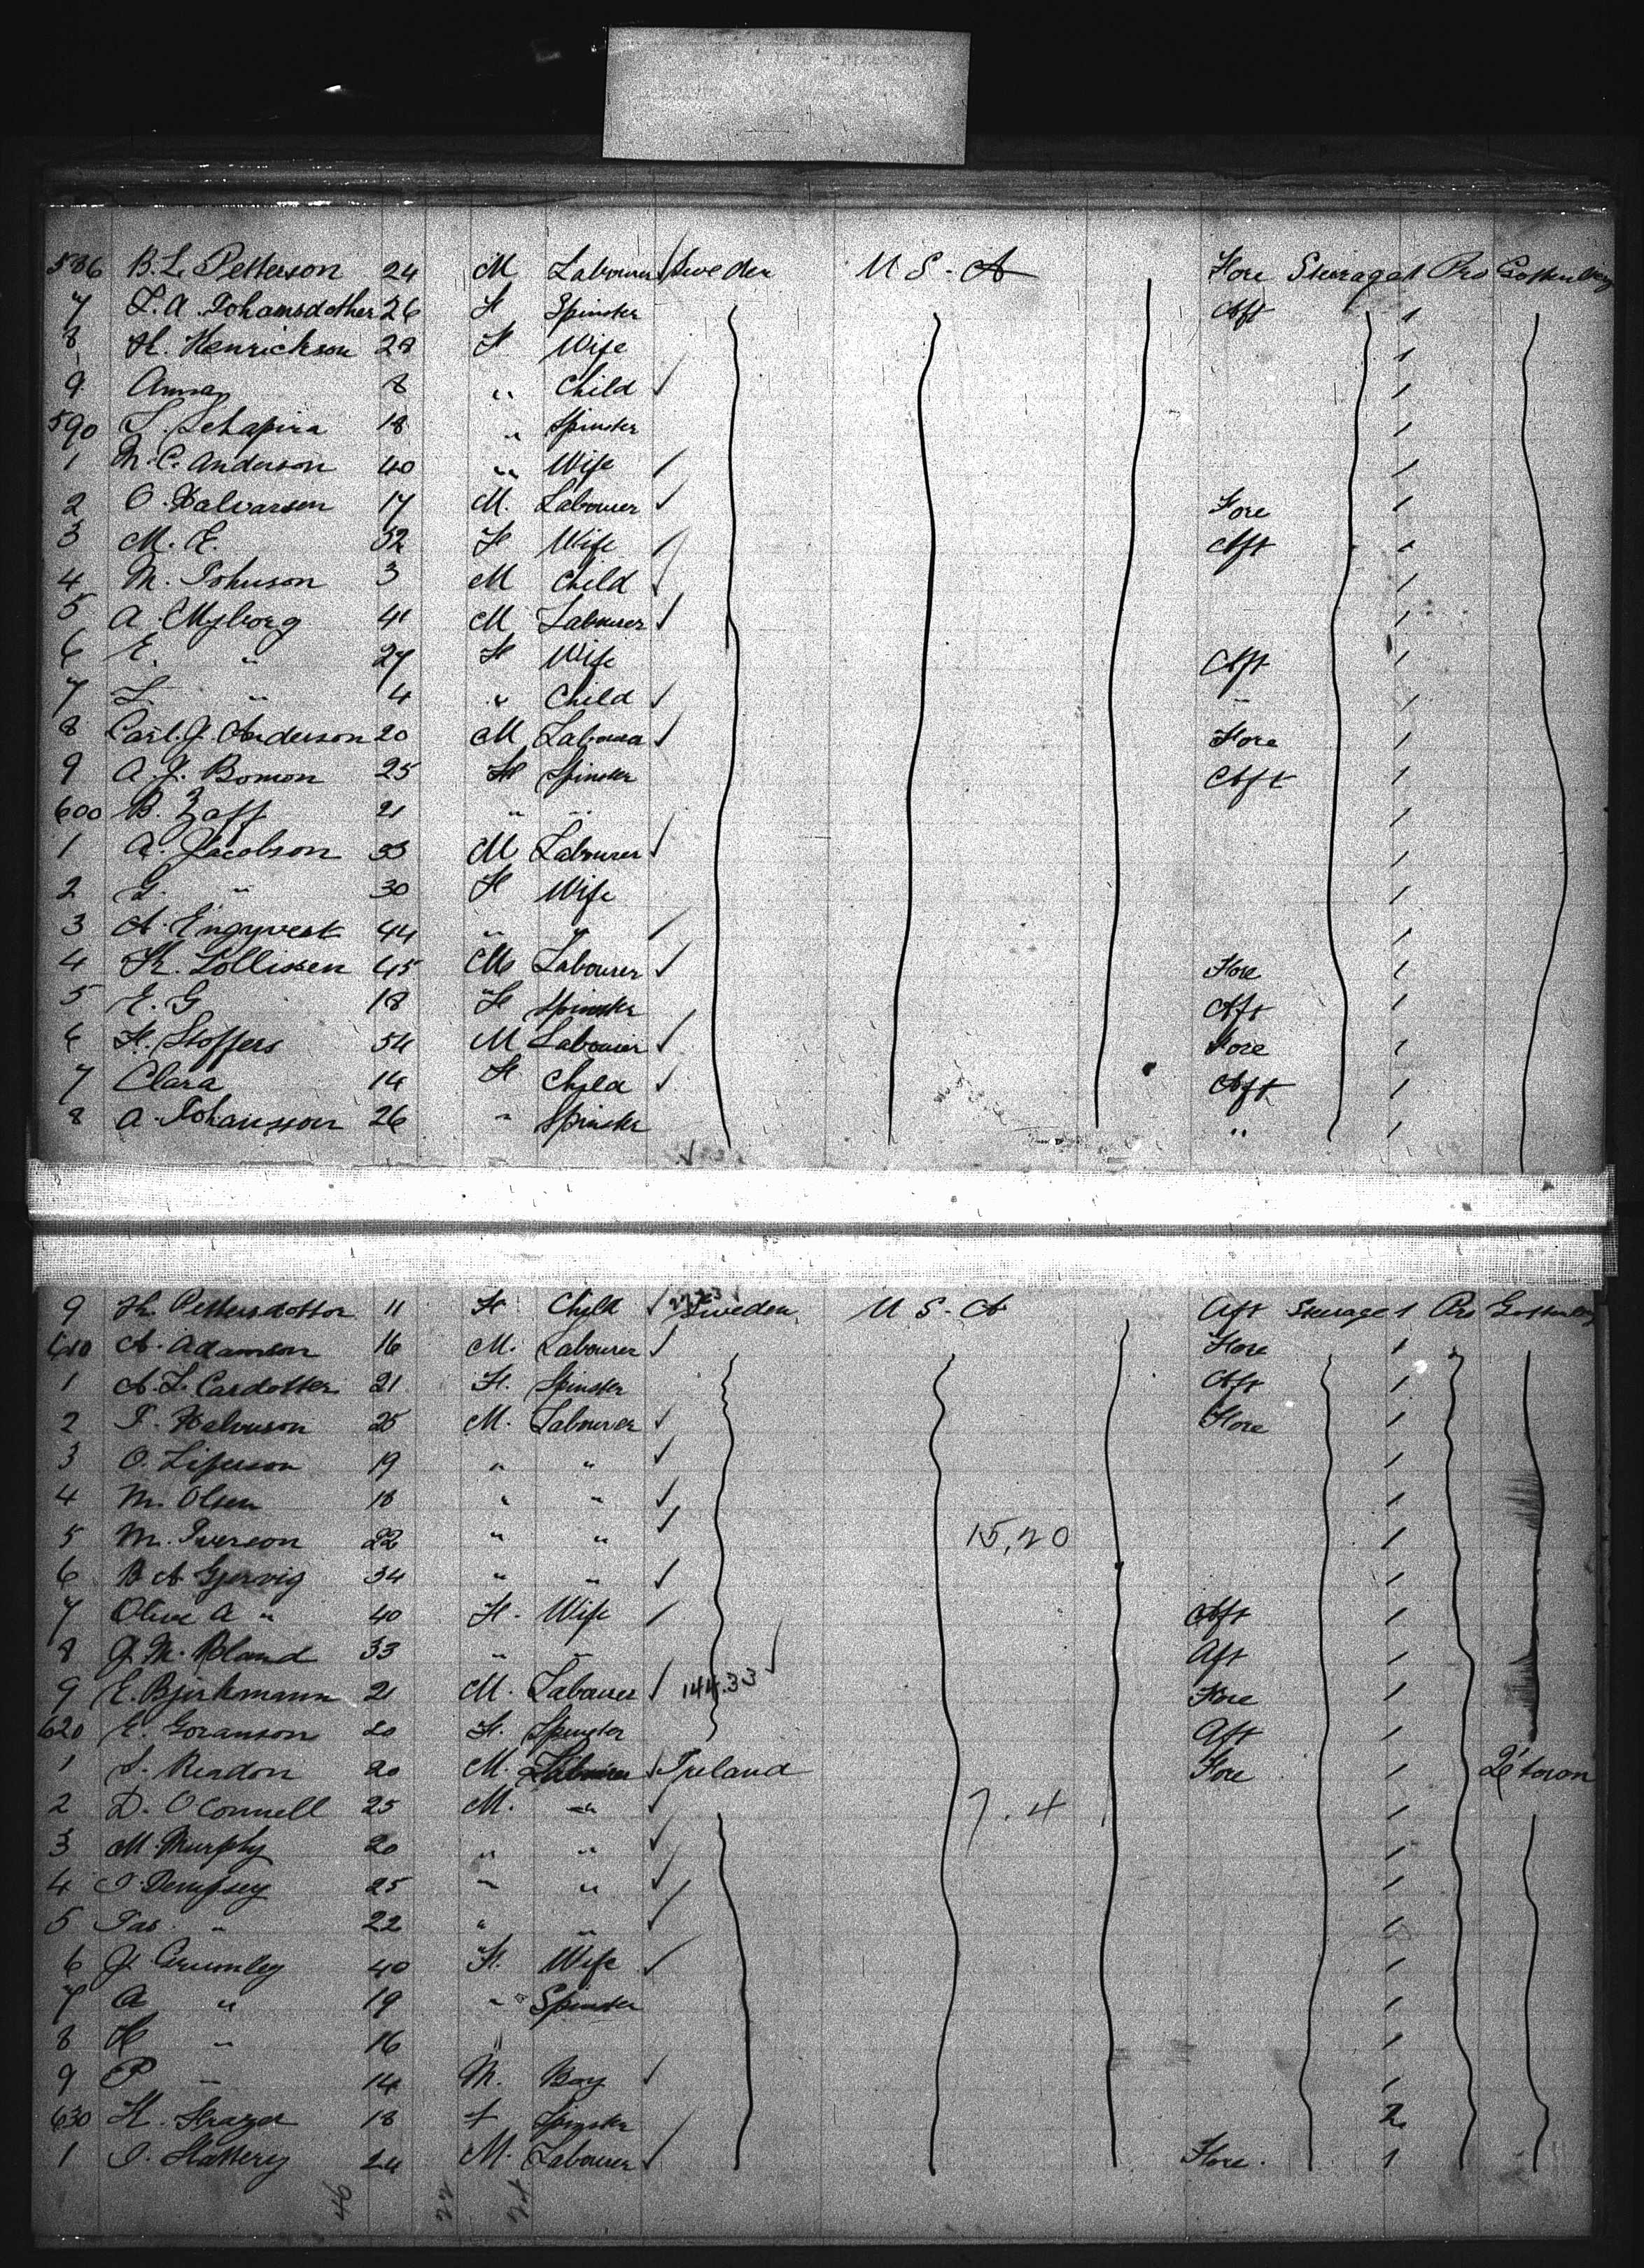 586 B. L. Petterson 24 M Labourer Sweden U S - A Fore Steerage 1 Pro Gottenberg
7 L. A. Johansdother 26 F Spinster Aft 1
8 H. Henrickson 28 F Wife 1
9 Anna 8 " Child 1
590 S. Schapira 18 " Spinster 1
1 M. C. Anderson 40 " Wife 1
2 O. Halvarsen 17 M. Labourer Fore 1
3 M. E. 32 F Wife Aft 1
4 M. Johnson 3 M Child 1
5 A. Myborg 41 M Labourer 1
6 E. " 27 F Wife Aft 1
7 L. " 4 " Child " 1
8 Carl. J. Anderson 20 M Labourer Fore 1
9 A. J. Bomon 25 F Spinster Aft 1
600 B. Zaff 21 " " 1
1 A. Jacobson 33 M Labourer 1
2 G. " 30 F Wife 1
3 A. Engqvest 44 " " 1
4 K. Tollissen 45 M Labourer Fore 1
5 E. G 18 F Spinster Aft 1
6 H. Stoffers 54 M Labourer Fore 1
7 Clara 14 F Child Aft 1
8 A. Johansson 26 " Spinster " 1
9 K. Pettersdotter 11 F Child Sweden U S - A Aft Steerage 1 Pro Gottenberg
610 A. Adamson 16 M. Labourer Fore 1
1 A. L. Cardotter 21 F. Spinster Aft 1
2 T. Halvuson 25 M. Labourer Fore 1
3 O. Liferson 19 " " 1
4 M. Olsen 18 " " 1
5 M. Iverson 22 " " 15,20 1
6 B A Gjervig 34 " " 1
7 Olive A " 40 F. Wife Aft 1
8 J. M. Bland 33 " " Aft 1
9 E. Bjorkmann 21 M. Labourer 144.33 Fore 1
620 E. Goranson 20 F. Spinster Aft 1
1 S. Readon 20 M. Labourer Ireland Fore 1 Q'town
2 D. O'Connell 25 M. " 7.4 1
3 M. Murphy 20 " " 1
4 J. Dempsey 25 " " 1
5 Jas. " 22 " " 1
6 J. Crumley 40 F. Wife 1
7 A " 19 " Spinster 1
8 H " 16 " 1
9 P " 14 M. Boy 1
630 K. Frazer 18 f Spinster 2
1 J. Slattery 24 M. Labourer Fore. 1